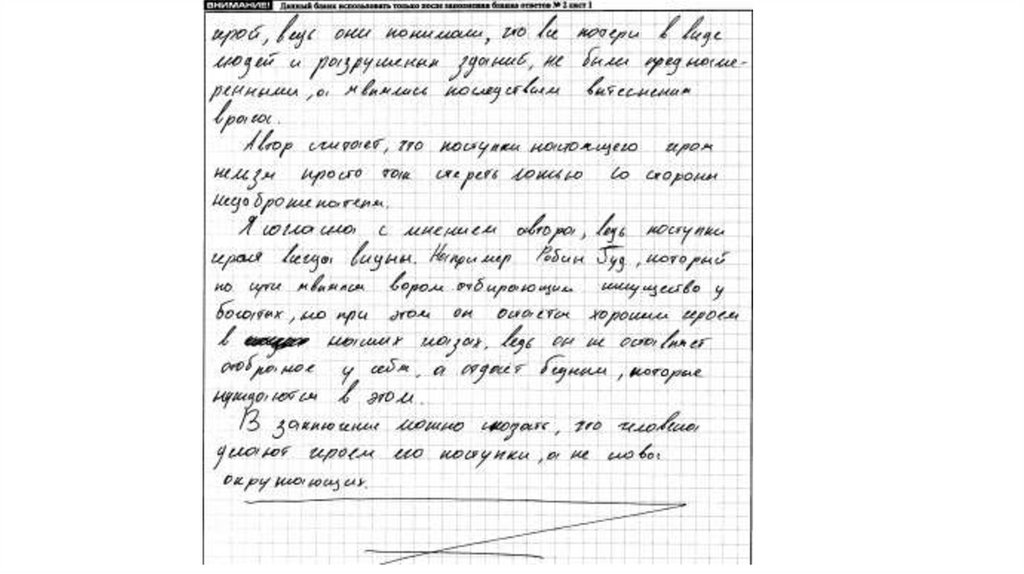 ВНИМАНИЕ! Данный бланк использовать только после заполнения бланка ответов № 2 лист 1
герой, ведь они понимали, что все потери в виде
людей и разрушения зданий, не были преднаме-
ренными, а являлись последствием вытеснения
врага.
Автор считает, что поступки настоящего героя
нельзя просто так стереть ложью со стороны
недоброжелателя.
Я согласна с мнением автора, ведь поступки
героя всегда видны. Например Робин Гуд, который
по сути являлся вором отбирающим имущество у
богатых, но при этом он остается хорошим героем
в наших глазах, ведь он не оставляет
отобраное у себя, а отдает бедным, которые
нуждаются в этом.
В заключение можно сказать, что человека
делают героем его поступки, а не слова
окружающих.